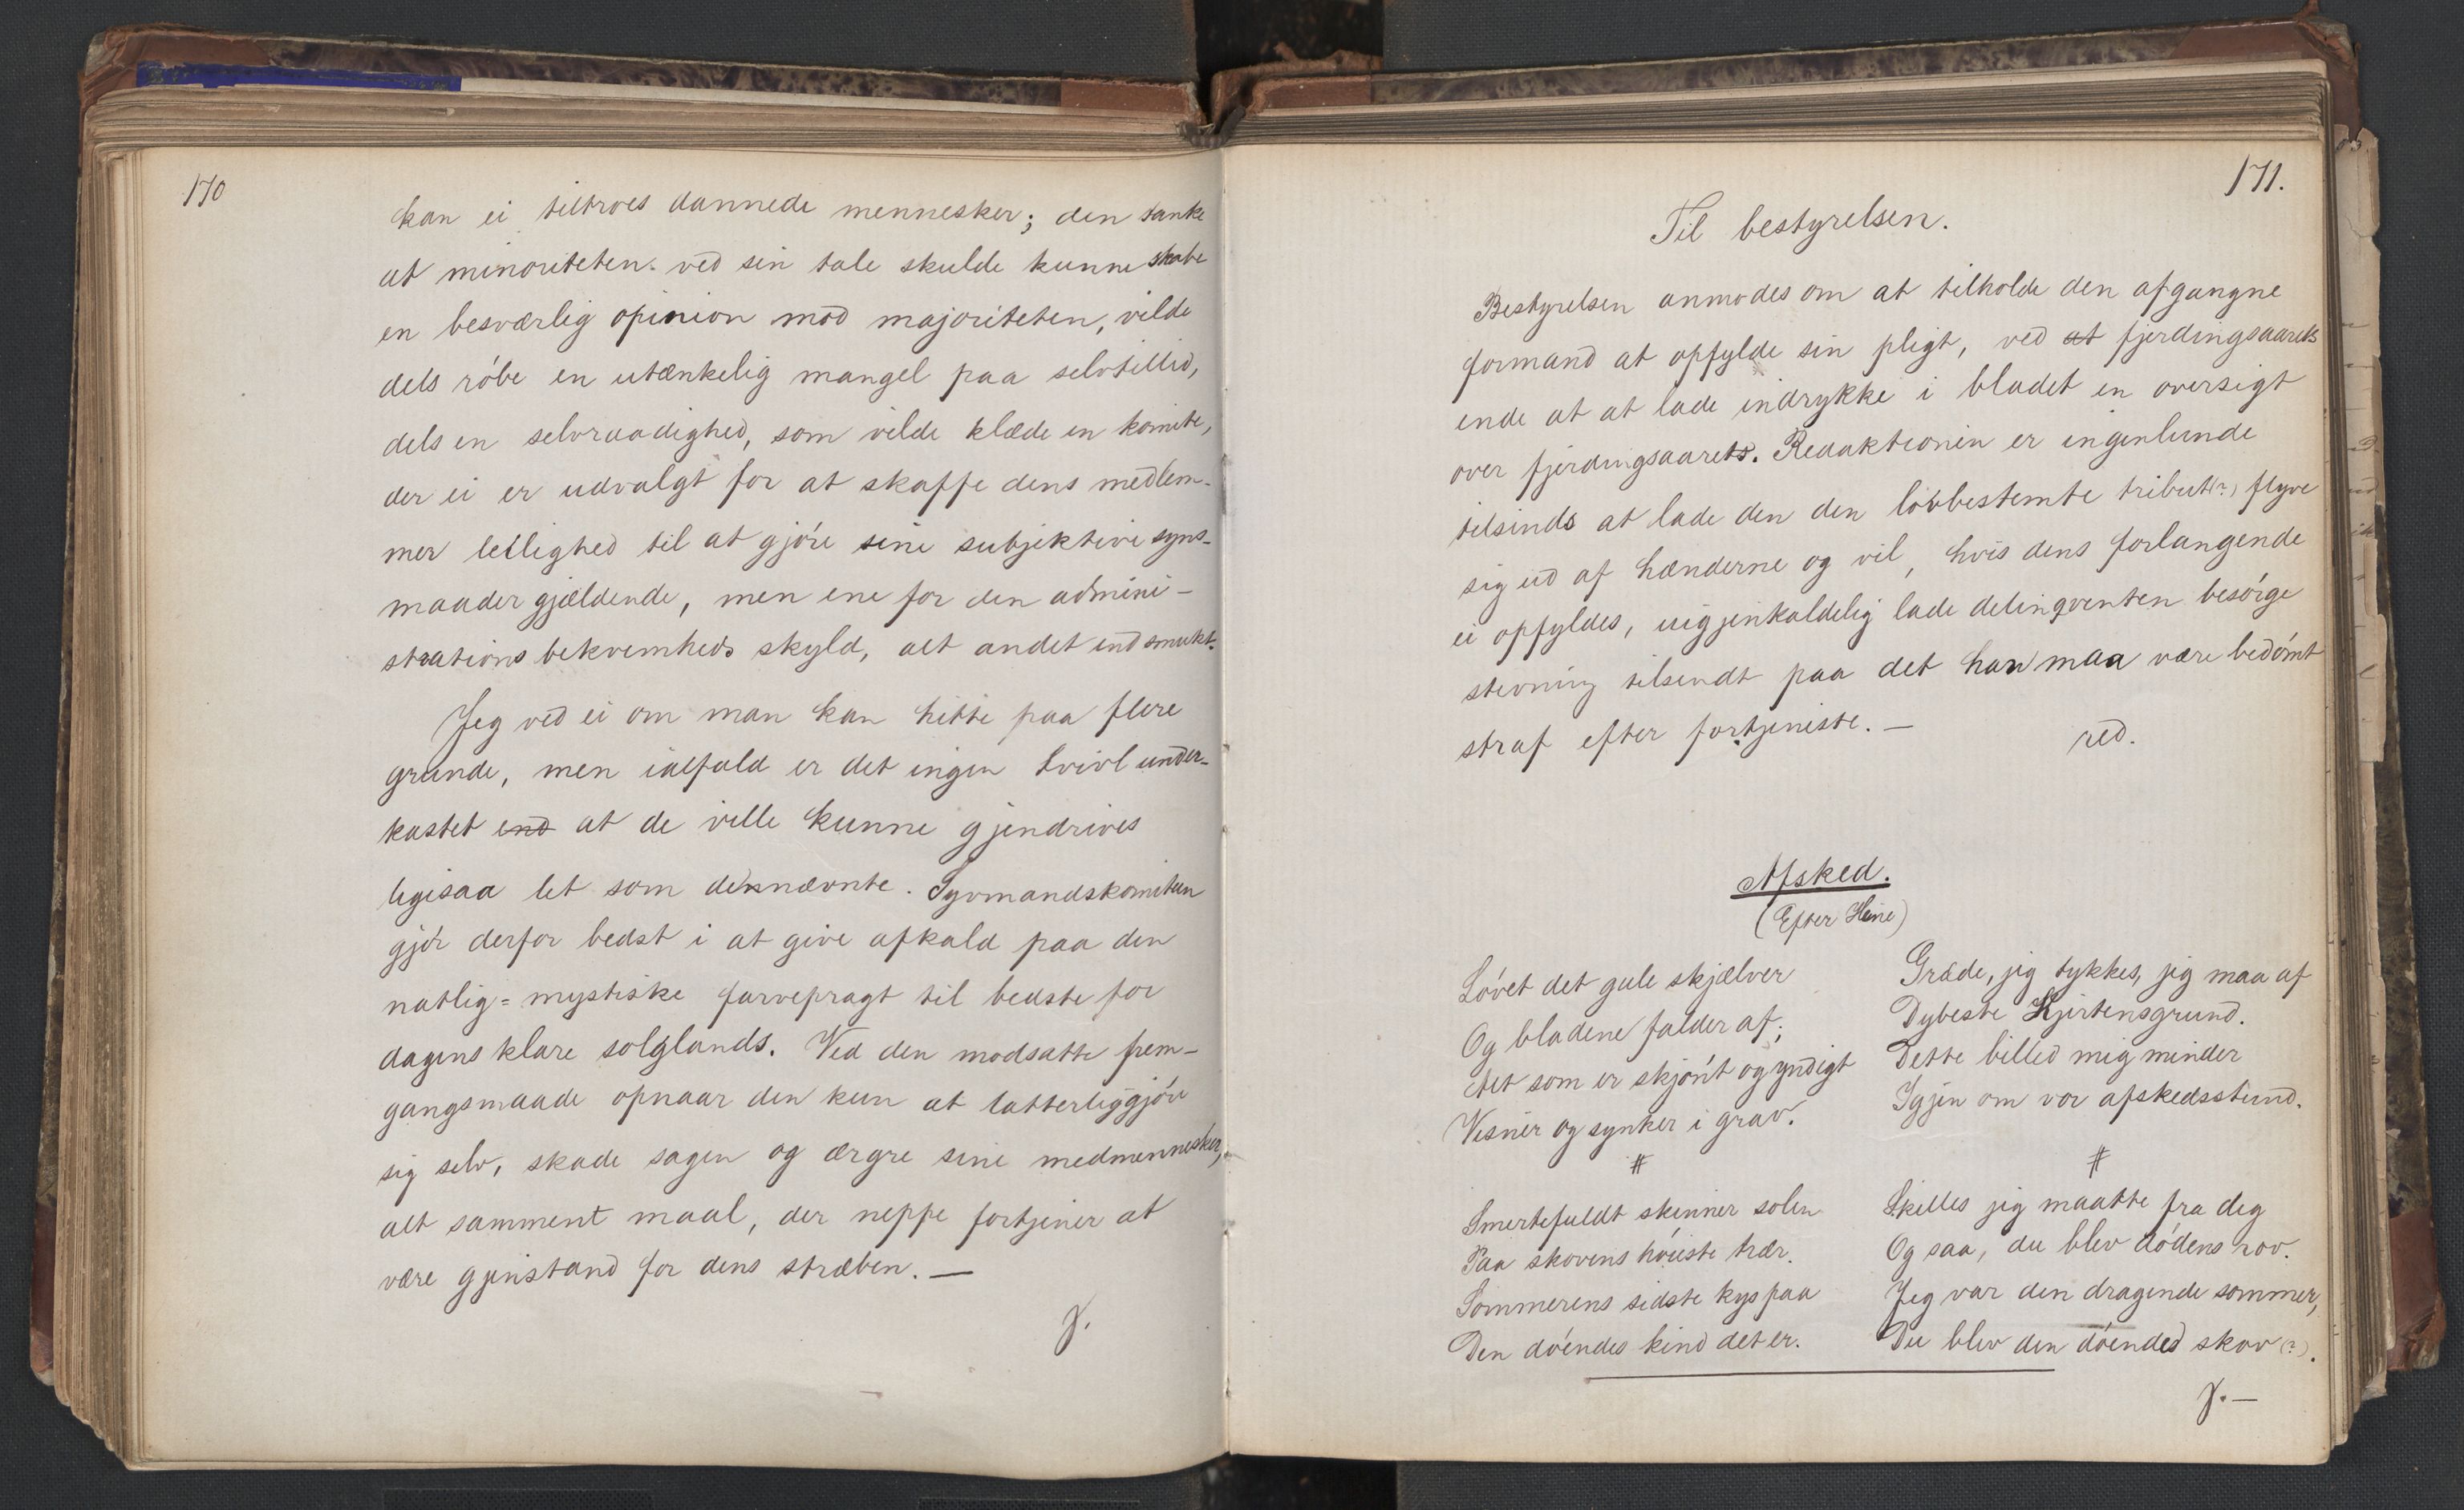 170
kan ei tiltroes dannede mennesker; den tanke
at minoriteten ved sin tale skulde kunne skabe
en besværlig opinion mod majoriteten, vilde
dels róbe en utænkelig mangel paa selvtillid,
dels en selvraadighed, som vilde klæde en komite,
der ei er udvalgt for at skaffe dens medlem-
mer leilighed til at gjóre sine subjektive syns-
maader gjældende, men ene for den admini-
strations bekvemheds skyld, alt andet end smukt.
Jeg ved ei om man kan hitte paa flere
grunde, men ialfald er det ingen tvivl under-
kastet end at de ville kunne gjendrives
ligesaa let som de nævnte. Syvmandskomiteen
gjór derfor bedst i at give afkald paa den
natlig=mystiske farvepragt til bedste for
dagens klare solglands. Ved den modsatte frem-
gangsmaade opnaar den kun at latterliggjóre
sig selv, skade sagen og ærgre sine medmennesker,
alt samment maal, der neppe fortjener at
være gjenstand for dens stræben. —
γ.
171.
Til bestyrelsen.
Bestyrelsen anmodes om at tilholde den afgangne
formand at opfylde sin pligt, ved at fjerdingsaarets
ende at at lade indrykke i bladet en oversigt
over fjerdingsaarets. Redaktionen er ingenlunde
tilsinds at lade den den lovbestemte tribut(?) flyve
sig ud af hænderne og vil, hvis dens forlangende
ei opfyldes, uigjenkaldelig lade delinqventen besórge
stevning tilsendt paa det han maa være bedómt
straf efter fortjeniste. —
red.
Afsked.
(Efter Heine)
Lóvet det gule skjælver
Og bladene falder af;
Alt som er skjónt og yndigt
Visner og synker i grav.
#
Smertefuldt skinner solen
Paa skovens hóieste trær.
Sommerens sidste kys paa
Den dóendes kind det er.
Græde, jeg tykkes, jeg maa af
Dybeste Hjertensgrund.
Dette billed mig minder
Igjen om vor afskedsstund.
#
Skilles jeg maatte fra dig
Og saa, du blev dódens rov.
Jeg var den dragende sommer,
Du blev den dóended skov (?).
γ. —